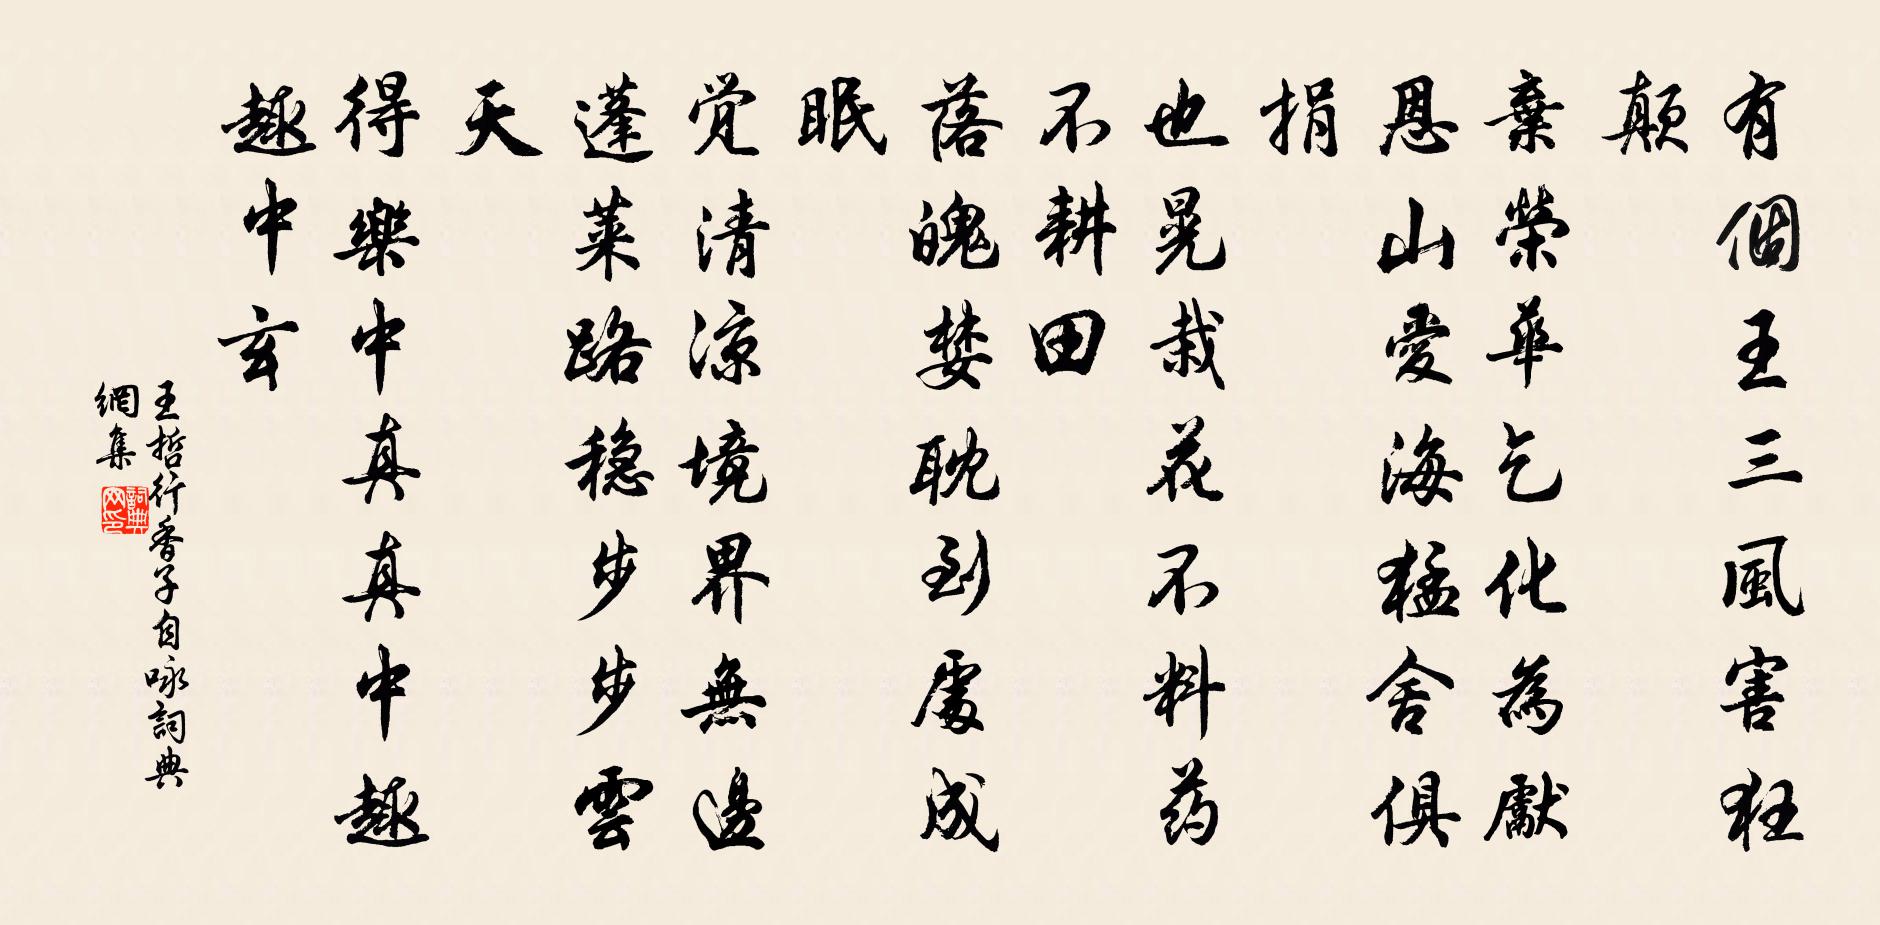 有個王三風害狂
顛
棄榮華乞化為獻
恩山愛海猛舍俱
捐
也晃栽花不料药
不耕田
落魄婪耽到處成
眠
觉清涼境界無邊
蓬萊路稳步步雲
天
得樂中真真中趣
趣中玄
王哲行香子自咏詞典
網集
詞典
网印